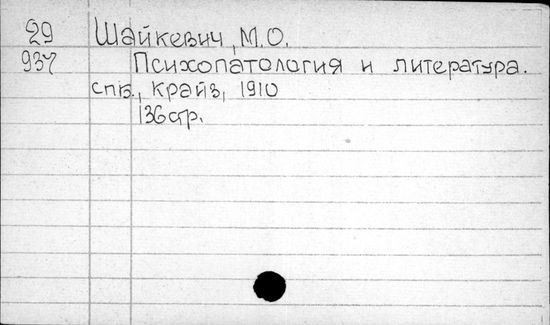 29 Шайкевич, М.О.
937 Психопатология и литература.
спб., крайз, 1910
136 стр.